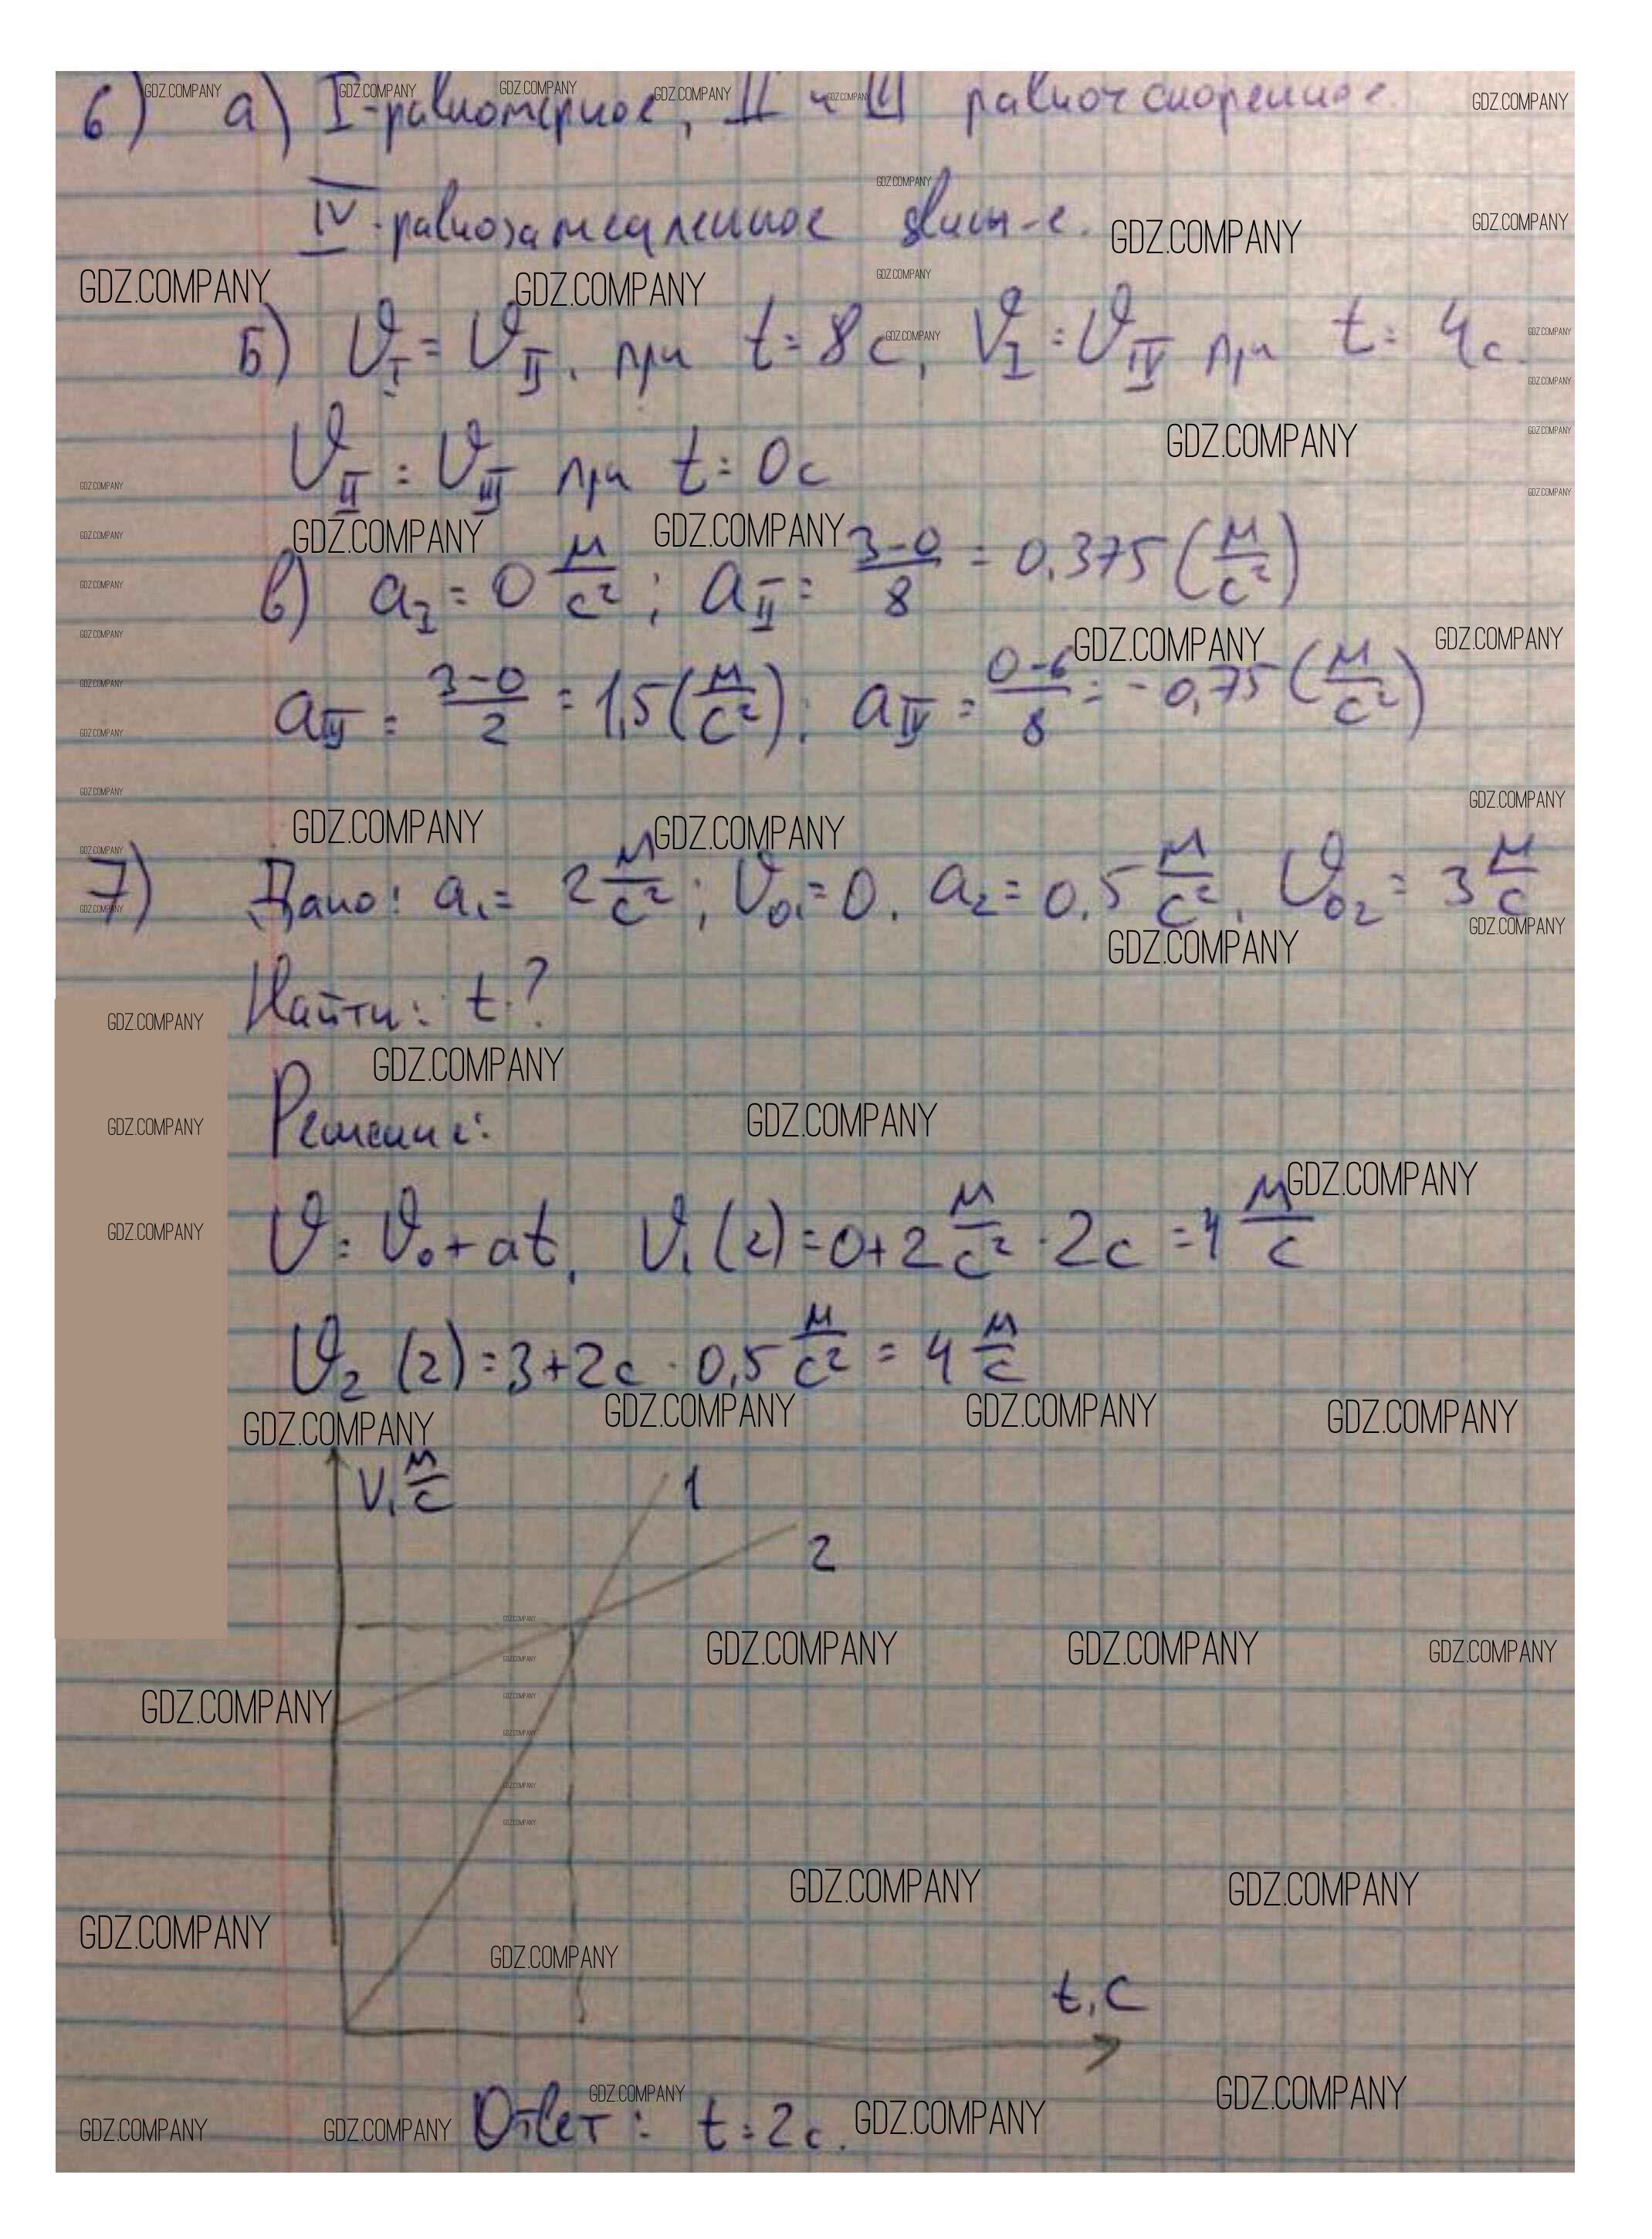 6) а) I-равномерное, II и III равноускоренное.
IV-равнозамедленное движ-е.
Б) V_I = V_II, при t = 8 с, V_I = V_IV при t = 4 с.
V_II = V_III при t = 0 с
в) a_I = 0 м/с²; a_II = (3-0)/8 = 0,375 (м/с²)
a_III = (3-0)/2 = 1,5 (м/с²); a_IV = (0-6)/8 = -0,75 (м/с²)
7) Дано: a₁ = 2 м/с²; V₀₁ = 0, a₂ = 0,5 м/с², V₀₂ = 3 м/с
Найти: t-?
Решение:
V = V₀ + at, V₁(2) = 0 + 2 м/с² · 2 с = 4 м/с
V₂(2) = 3 + 2 с · 0,5 м/с² = 4 м/с
V, м/с
1
2
t, с
Ответ: t = 2 с.
GDZ.COMPANY